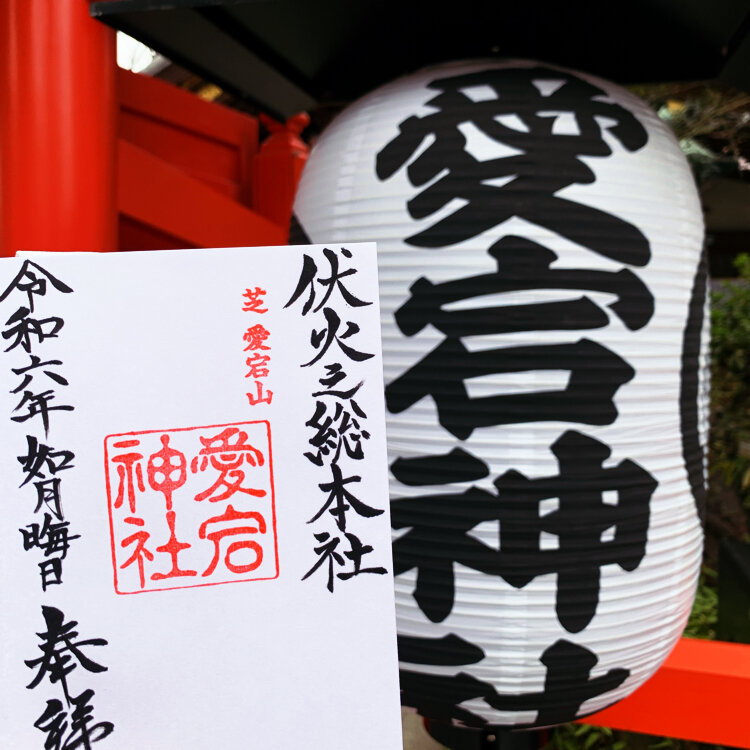 愛宕神社
伏火之総本社
芝 愛宕山
愛宕
神社
令和六年如月晦日
奉拝